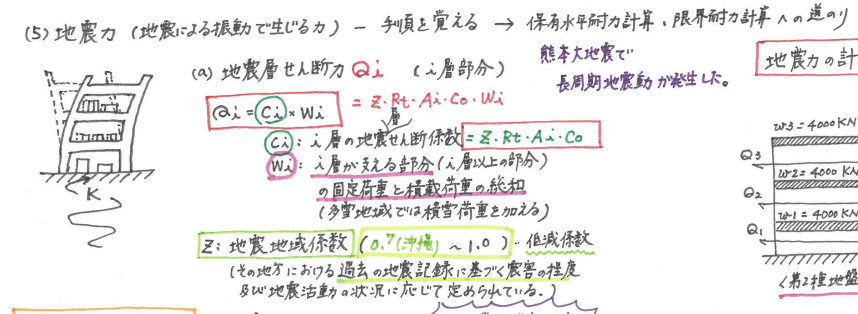 (5) 地震力 (地震による振動で生じる力) － 手順を覚える → 保有水平耐力計算、限界耐力計算への道のり
(a) 地震層せん断力 Qi (i層部分)
熊本大地震で
長周期地震動が発生した。
地震力の計
Qi = Ci × Wi = Z・Rt・Ai・Co・Wi
層
Ci : i層の地震せん断係数 = Z・Rt・Ai・Co
Wi : i層が支える部分 (i層以上の部分)
の固定荷重と積載荷重の総和
(多雪地域では積雪荷重を加える)
K
w3 = 4000KN
Q3
w2 = 4000KN
Q2
w1 = 4000KN
Q1
Z : 地震地域係数 (0.7(沖縄) ~ 1.0) - 低減係数
(その地方における過去の地震記録に基づく震害の程度
及び地震活動の状況に応じて定められている。)
(第2種地盤